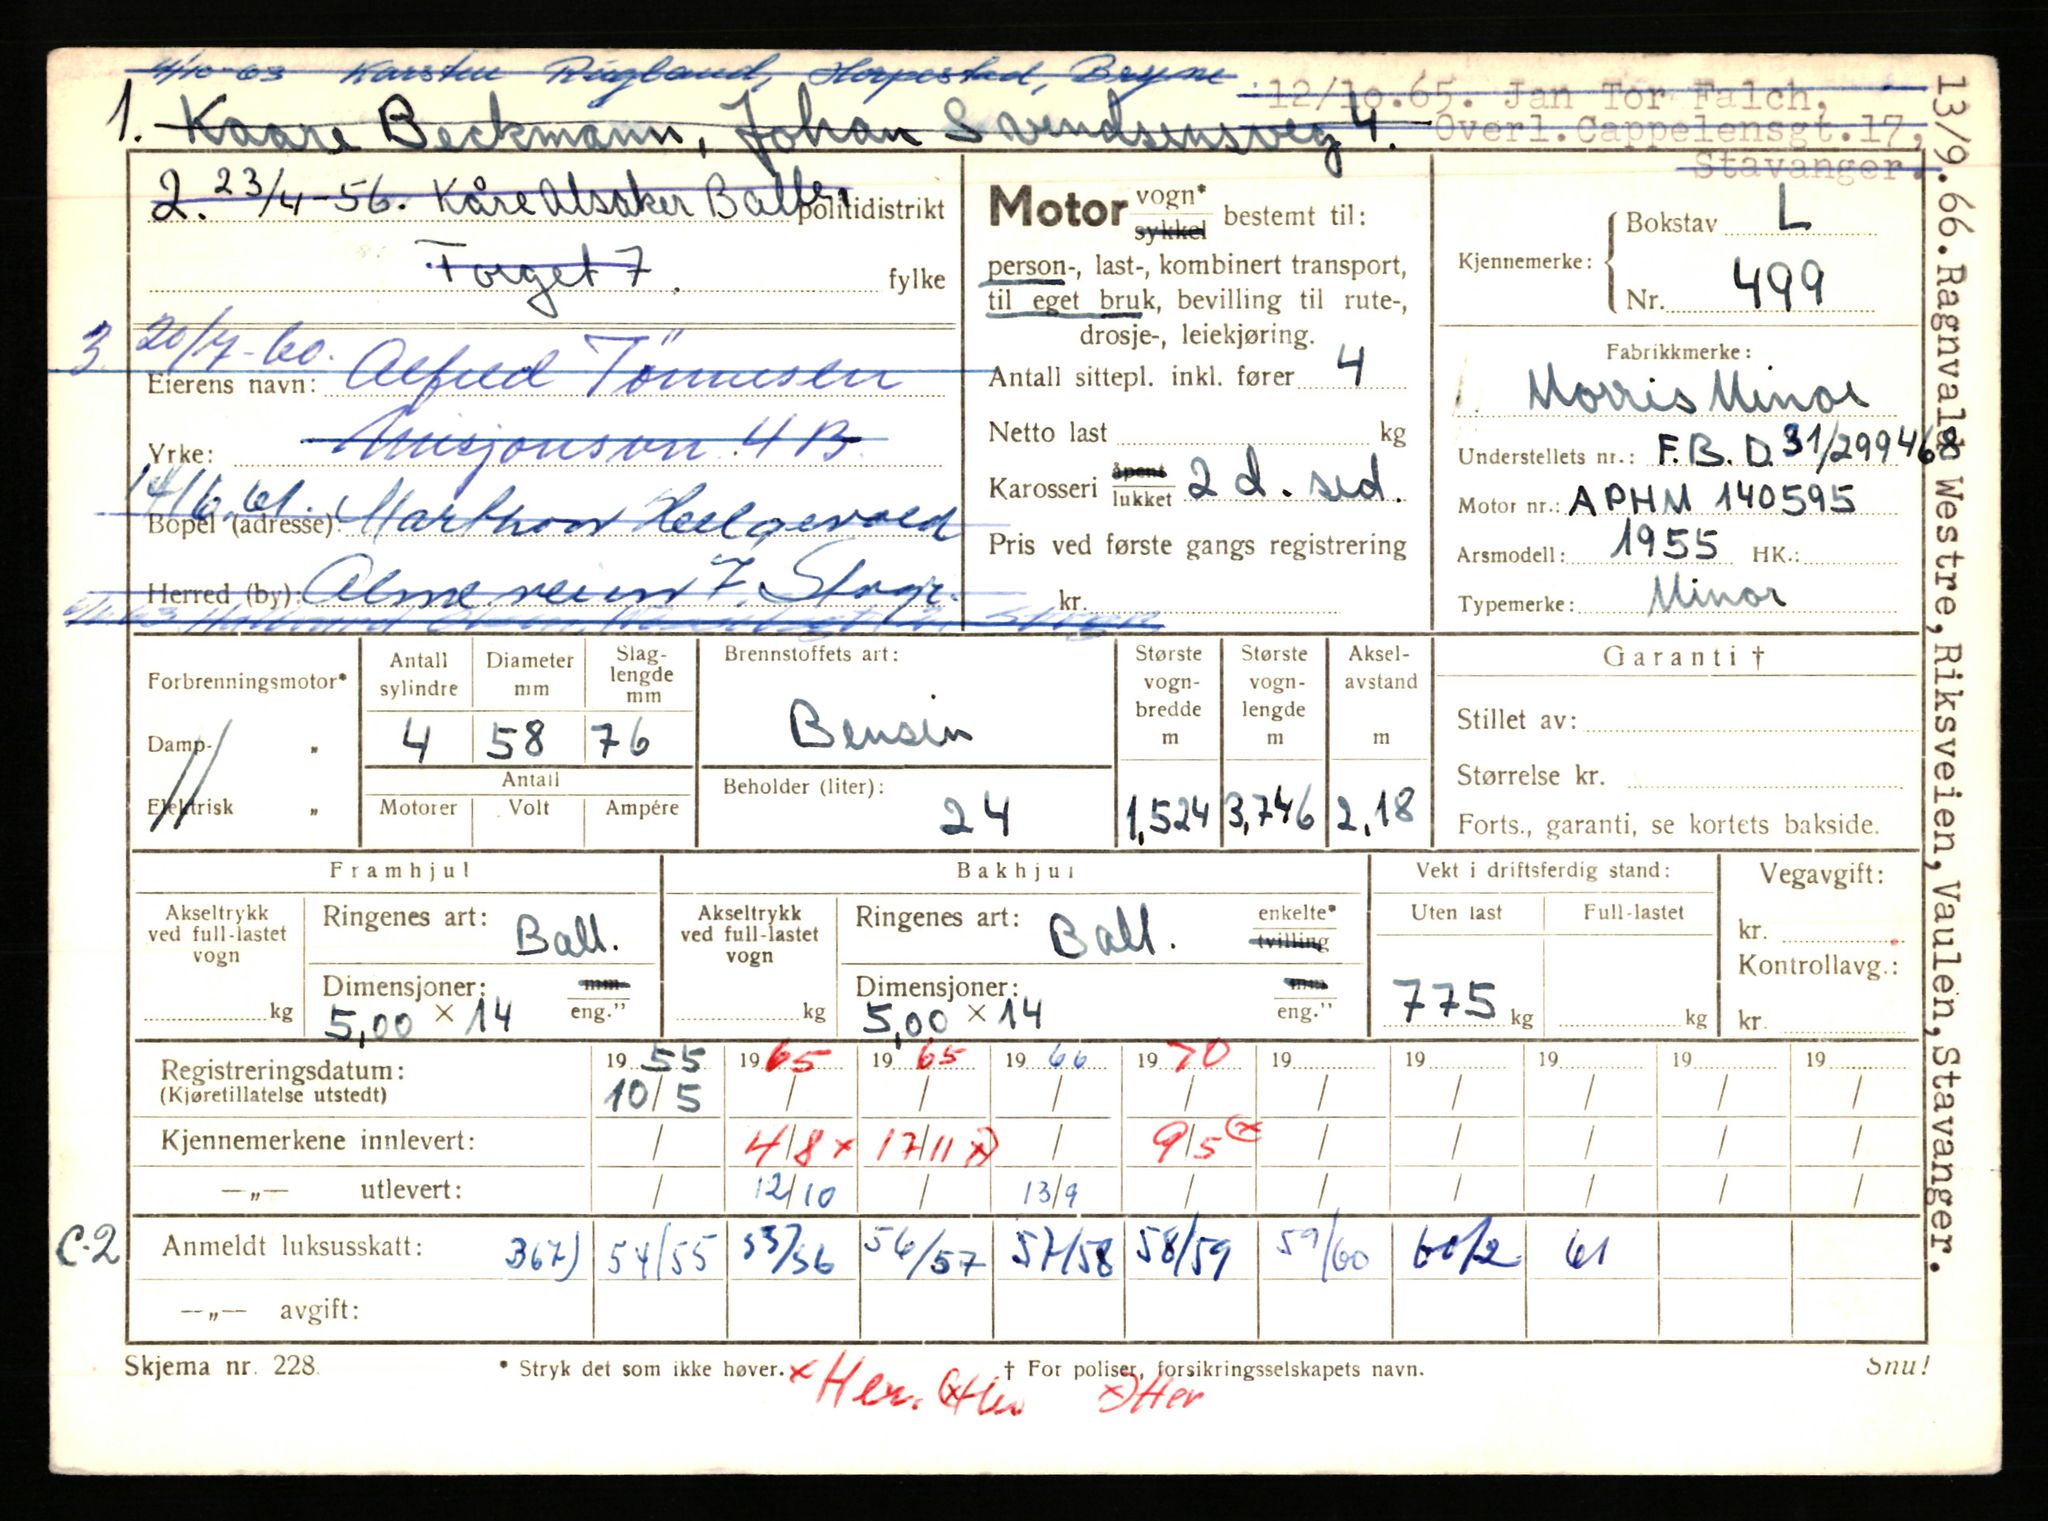 4/10-63 Karsten Rugland, Horpestad, Bryne
12/10.65. Jan Tor Falch,
1. Kaare Beckmann, Johan Svendsensveg 4.
Øverl.Cappelensgt.17,
Stavanger.
13/9.66.Ragnvald Westre,Riksveien,Vaulen,Stavanger.
2. 23/4-56. Kåre Alsaker politidistrikt
Torget 7. fylke
3 20/7-60.
Eierens navn: Alfred Tönnesen
Yrke: Misjonsvn. 4B.
14/6.61.
Bopel (adresse): Marthon Helgevold
Herred (by): Almeveien 7, Stvgr.
Motor vogn* sykkel bestemt til:
person-, last-, kombinert transport,
til eget bruk, bevilling til rute-,
drosje-, leiekjøring.
Antall sittepl. inkl. fører 4
Netto last kg
Karosseri åpent lukket 2 d. sed.
Pris ved første gangs registrering
kr.
Kjennemerke: Bokstav L
Nr. 499
Fabrikkmerke:
Morris Minor
Understellets nr.: F.B.D.31/299468
Motor nr.: APHM 140595
Arsmodell: 1955 HK.:
Typemerke: Minor
Forbrenningsmotor*
Damp- „
Elektrisk „
Antall sylindre
Diameter mm
Slag-lengde mm
4 58 76
Antall
Motorer Volt Ampére
Brennstoffets art:
Bensin
Beholder (liter):
24
Største vogn-bredde m
1,524
Største vogn-lengde m
3,746
Aksel-avstand m
2,18
Garanti †
Stillet av:
Størrelse kr.
Forts., garanti, se kortets bakside.
Framhjul
Akseltrykk ved full-lastet vogn
kg
Ringenes art: Ball.
Dimensjoner: mm eng.”
5,00 × 14
Bakhjul
Akseltrykk ved full-lastet vogn
kg
Ringenes art: Ball. enkelte* tvilling
Dimensjoner: mm eng.”
5,00 × 14
Vekt i driftsferdig stand:
Uten last Full-lastet
775 kg kg
Vegavgift:
kr.
Kontrollavg.:
kr.
Registreringsdatum: 19 55 19 65 19 65 19 66 19 70 19 19 19 19 19
(Kjøretillatelse utstedt) 10/5 / / / / / / / / /
Kjennemerkene innlevert: / 4/8 x 17/11 x) / 9/5 (x / / / / /
—„— utlevert: / 12/10 / 13/9 / / / / / /
C-2 Anmeldt luksusskatt: 367) 54/55 55/56 56/57 57/58 58/59 59/60 60/2 61
—„— avgift:
Skjema nr. 228. * Stryk det som ikke høver. † For poliser, forsikringsselskapets navn. Snu!
x Her. (x Her x) Her